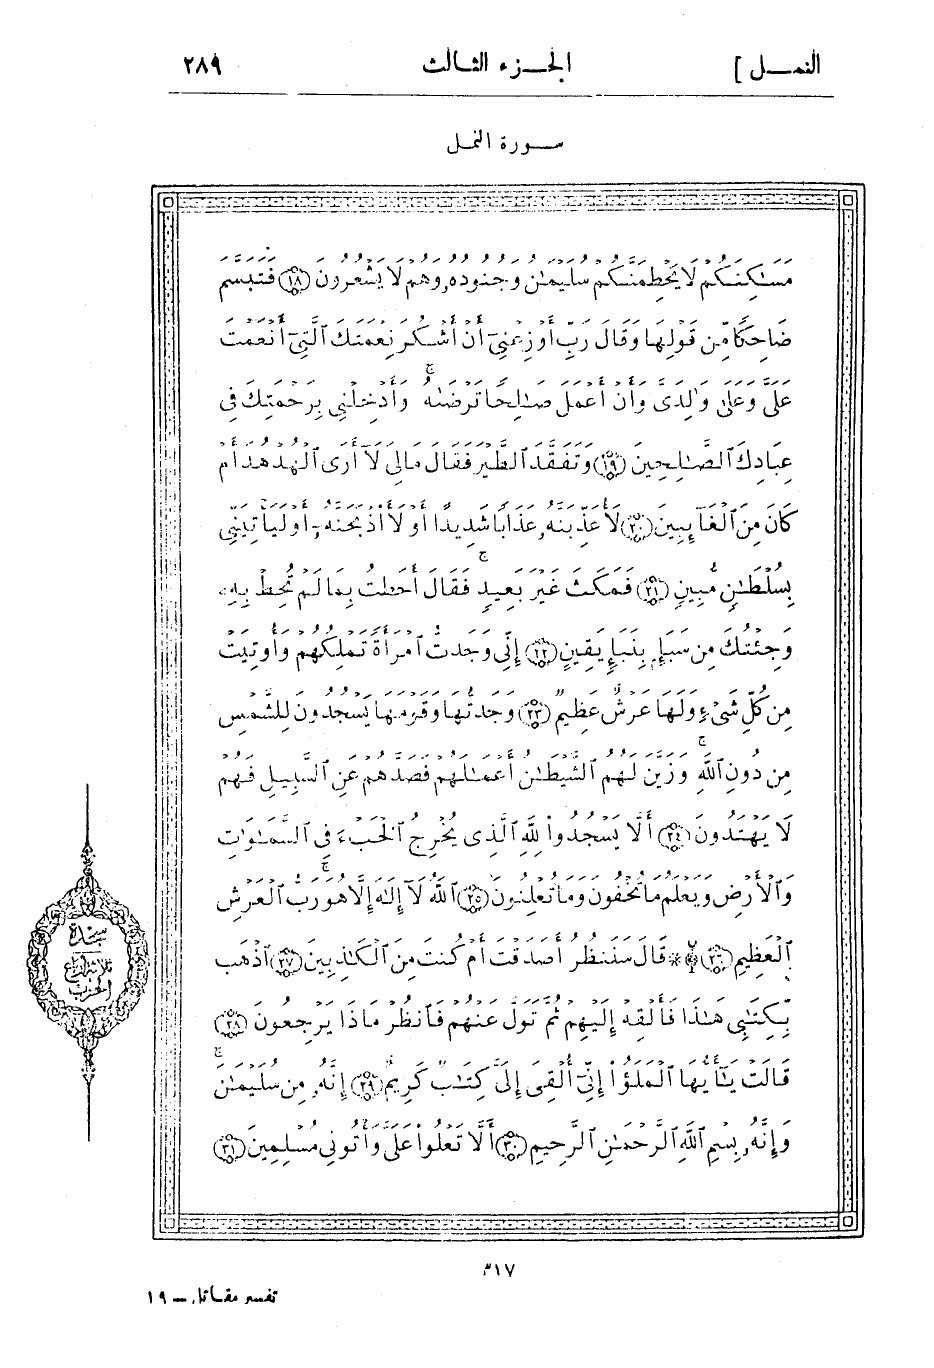 النمـــل ]
الجـــزء الثـالث
٢٨٩
ســـورة النمـل
مَسَٰكِنَكُمْ لَا يَحْطِمَنَّكُمْ سُلَيْمَٰنُ وَجُنُودُهُۥ وَهُمْ لَا يَشْعُرُونَ ﴿١٨﴾ فَتَبَسَّمَ
ضَاحِكًا مِّن قَوْلِهَا وَقَالَ رَبِّ أَوْزِعْنِىٓ أَنْ أَشْكُرَ نِعْمَتَكَ ٱلَّتِىٓ أَنْعَمْتَ
عَلَىَّ وَعَلَىٰ وَٰلِدَىَّ وَأَنْ أَعْمَلَ صَٰلِحًا تَرْضَىٰهُ وَأَدْخِلْنِى بِرَحْمَتِكَ فِى
عِبَادِكَ ٱلصَّٰلِحِينَ ﴿١٩﴾ وَتَفَقَّدَ ٱلطَّيْرَ فَقَالَ مَالِىَ لَآ أَرَى ٱلْهُدْهُدَ أَمْ
كَانَ مِنَ ٱلْغَآئِبِينَ ﴿٢٠﴾ لَأُعَذِّبَنَّهُۥ عَذَابًا شَدِيدًا أَوْ لَأَاْذْبَحَنَّهُۥٓ أَوْ لَيَأْتِيَنِّى
بِسُلْطَٰنٍ مُّبِينٍ ﴿٢١﴾ فَمَكَثَ غَيْرَ بَعِيدٍ فَقَالَ أَحَطتُ بِمَا لَمْ تُحِطْ بِهِۦ
وَجِئْتُكَ مِن سَبَإٍۭ بِنَبَإٍ يَقِينٍ ﴿٢٢﴾ إِنِّى وَجَدتُّ ٱمْرَأَةً تَمْلِكُهُمْ وَأُوتِيَتْ
مِن كُلِّ شَىْءٍ وَلَهَا عَرْشٌ عَظِيمٌ ﴿٢٣﴾ وَجَدتُّهَا وَقَوْمَهَا يَسْجُدُونَ لِلشَّمْسِ
مِن دُونِ ٱللَّهِ وَزَيَّنَ لَهُمُ ٱلشَّيْطَٰنُ أَعْمَٰلَهُمْ فَصَدَّهُمْ عَنِ ٱلسَّبِيلِ فَهُمْ
لَا يَهْتَدُونَ ﴿٢٤﴾ أَلَّا يَسْجُدُواْ لِلَّهِ ٱلَّذِى يُخْرِجُ ٱلْخَبْءَ فِى ٱلسَّمَٰوَٰتِ
وَٱلْأَرْضِ وَيَعْلَمُ مَا تُخْفُونَ وَمَا تُعْلِنُونَ ﴿٢٥﴾ ٱللَّهُ لَآ إِلَٰهَ إِلَّا هُوَ رَبُّ ٱلْعَرْشِ
ٱلْعَظِيمِ ﴿٢٦﴾ ۞ قَالَ سَنَنظُرُ أَصَدَقْتَ أَمْ كُنتَ مِنَ ٱلْكَٰذِبِينَ ﴿٢٧﴾ ٱذْهَب
بِّكِتَٰبِى هَٰذَا فَأَلْقِهْ إِلَيْهِمْ ثُمَّ تَوَلَّ عَنْهُمْ فَٱنظُرْ مَاذَا يَرْجِعُونَ ﴿٢٨﴾
قَالَتْ يَٰٓأَيُّهَا ٱلْمَلَؤُاْ إِنِّىٓ أُلْقِىَ إِلَىَّ كِتَٰبٌ كَرِيمٌ ﴿٢٩﴾ إِنَّهُۥ مِن سُلَيْمَٰنَ
وَإِنَّهُۥ بِسْمِ ٱللَّهِ ٱلرَّحْمَٰنِ ٱلرَّحِيمِ ﴿٣٠﴾ أَلَّا تَعْلُواْ عَلَىَّ وَأْتُونِى مُسْلِمِينَ ﴿٣١﴾
سجدة
ثلاثة أرباع
الحزب
٣١٧
تفسير مقـاتل – ١٩